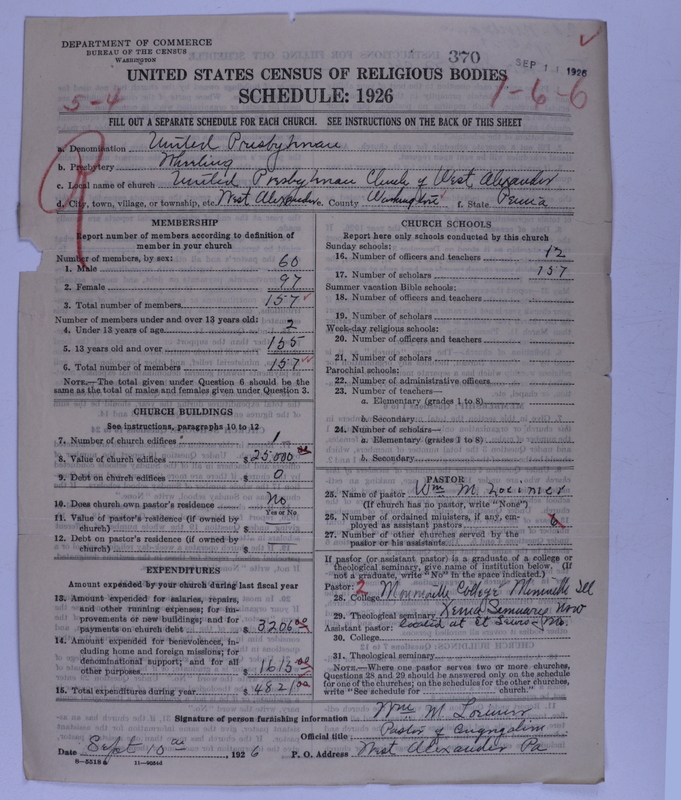 DEPARTMENT OF COMMERCE
BUREAU OF THE CENSUS
WASHINGTON
370
SEP 11 1926
UNITED STATES CENSUS OF RELIGIOUS BODIES
SCHEDULE: 1926
5-4
1-6-6
FILL OUT A SEPARATE SCHEDULE FOR EACH CHURCH. SEE INSTRUCTIONS ON THE BACK OF THIS SHEET
a. Denomination United Presbyterian
b. Presbytery Wheeling
c. Local name of church United Presbyterian Church of West Alexander
d. City, town, village, or township, etc. West Alexander e. County Washington f. State Penna
MEMBERSHIP
Report number of members according to definition of
member in your church
Number of members, by sex:
1. Male 60
2. Female 97
3. Total number of members 157
Number of members under and over 13 years old:
4. Under 13 years of age 2
5. 13 years old and over 155
6. Total number of members 157
NOTE.—The total given under Question 6 should be the
same as the total of males and females given under Question 3.
CHURCH BUILDINGS
See instructions, paragraphs 10 to 12
7. Number of church edifices 1
8. Value of church edifices $ 25000 00
9. Debt on church edifices $ 0
10. Does church own pastor's residence No
Yes or No
11. Value of pastor's residence (if owned by
church) $
12. Debt on pastor's residence (if owned by
church) $
EXPENDITURES
Amount expended by your church during last fiscal year
13. Amount expended for salaries, repairs,
and other running expenses; for im-
provements or new buildings; and for
payments on church debt $ 3206 00
14. Amount expended for benevolences, in-
cluding home and foreign missions; for
denominational support; and for all
other purposes $ 1615 00
15. Total expenditures during year $ 4821 00
CHURCH SCHOOLS
Report here only schools conducted by this church
Sunday schools:
16. Number of officers and teachers 12
17. Number of scholars 157
Summer vacation Bible schools:
18. Number of officers and teachers
19. Number of scholars
Week-day religious schools:
20. Number of officers and teachers
21. Number of scholars
Parochial schools:
22. Number of administrative officers
23. Number of teachers—
a. Elementary (grades 1 to 8)
b. Secondary
24. Number of scholars—
a. Elementary (grades 1 to 8)
b. Secondary
PASTOR
25. Name of pastor Wm M. Lorimer
(If church has no pastor, write "None")
26. Number of ordained ministers, if any, em-
ployed as assistant pastors
27. Number of other churches served by the
pastor or his assistants
If pastor (or assistant pastor) is a graduate of a college or
theological seminary, give name of institution below. (If
not a graduate, write "No" in the space indicated.)
Pastor: 2
28. College Monmouth College Monmouth Ill
29. Theological seminary Xenia Seminary Now
Assistant pastor: located at St Louis Mo.
30. College
31. Theological seminary
NOTE.—Where one pastor serves two or more churches,
Questions 28 and 29 should be answered only on the schedule
for one of the churches; on the schedules for the other churches,
write "See schedule for church."
Signature of person furnishing information Wm M Lorimer
Official title Pastor of Congregation
Date Sept 10th, 1926 P. O. Address West Alexander Pa
8—5518a 11—9034d